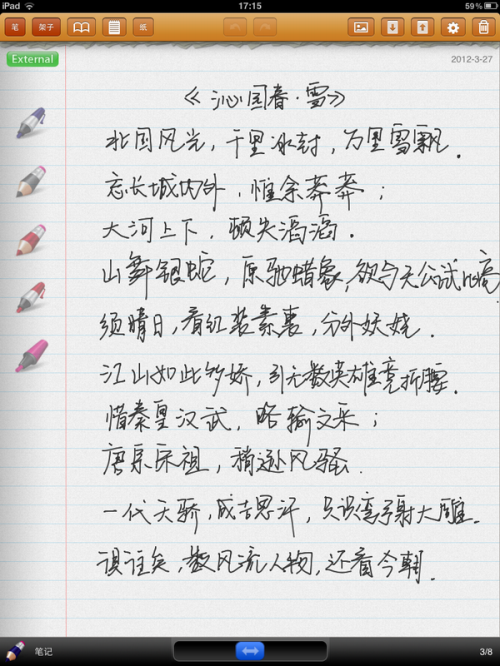 iPad 17:15 59%
笔 架子 纸
External 2012-3-27
《沁园春·雪》
北国风光，千里冰封，万里雪飘．
忘长城内外，惟余莽莽；
大河上下，顿失滔滔．
山舞银蛇，原驰蜡象，欲与天公试比高
须晴日，看红装素裹，分外妖娆．
江山如此多娇，引无数英雄竞折腰．
惜秦皇汉武，略输文采；
唐宗宋祖，稍逊风骚．
一代天骄，成吉思汗，只识弯弓射大雕．
俱往矣，数风流人物，还看今朝．
笔记 3/8